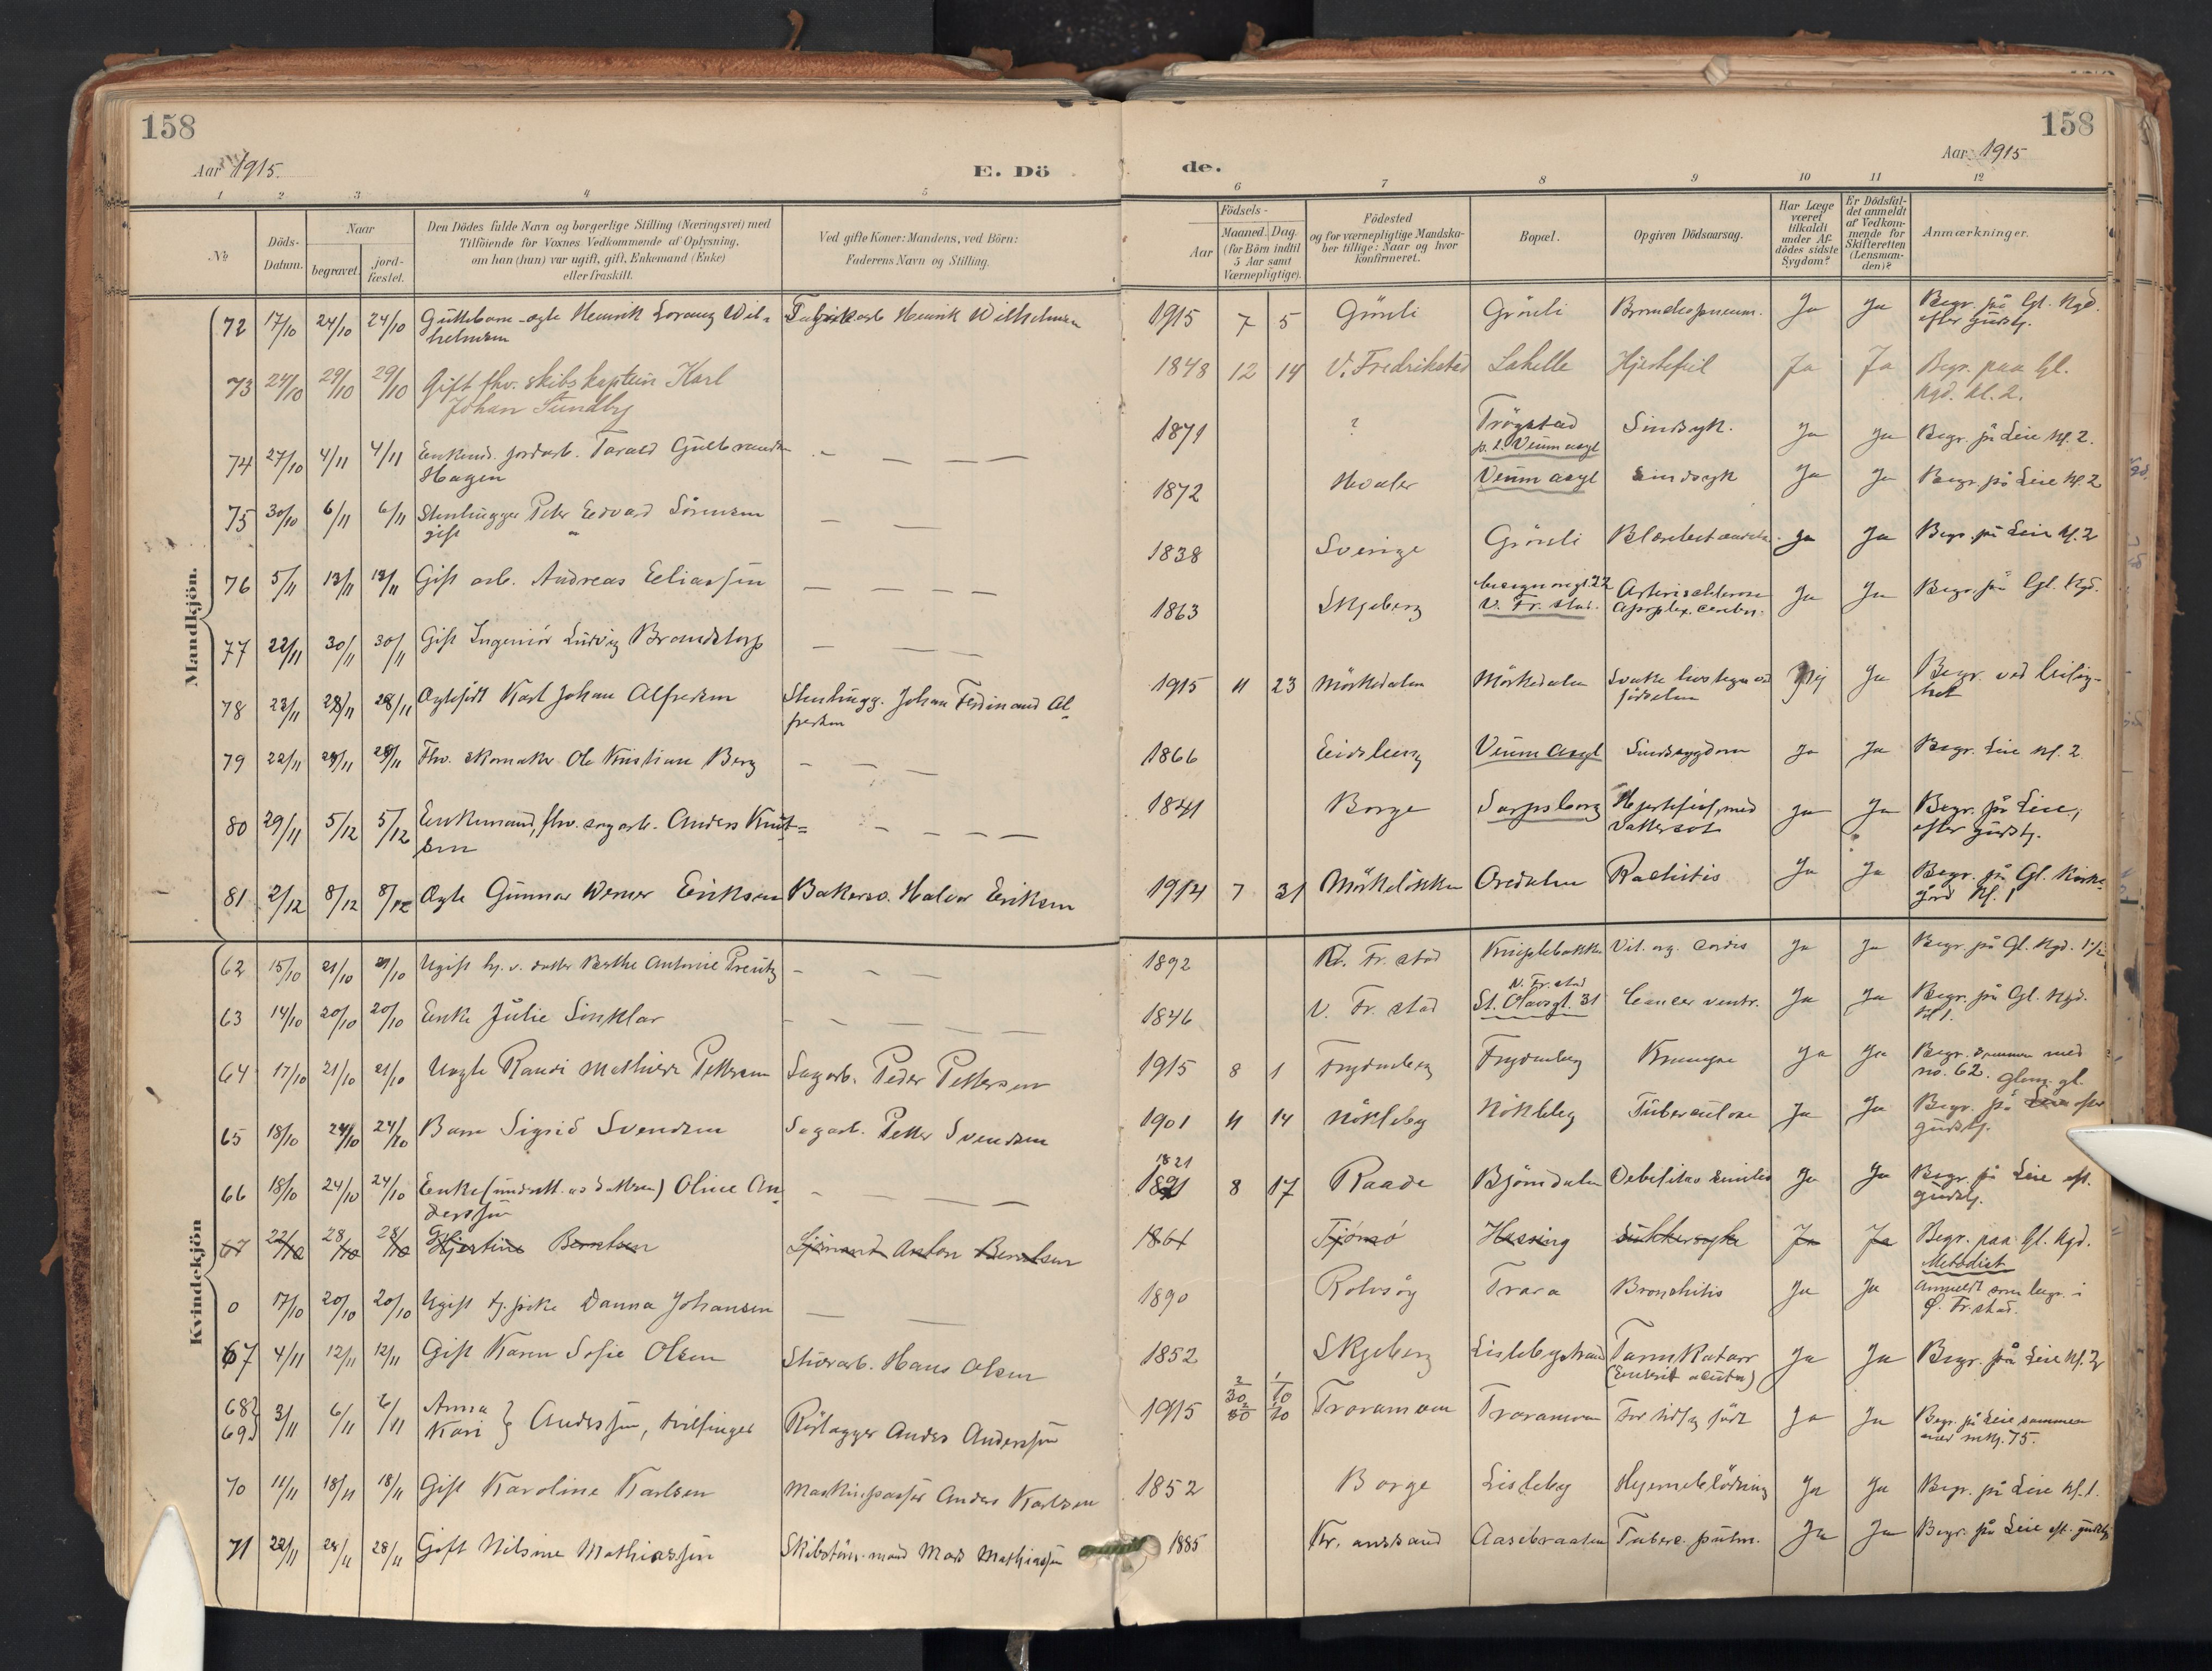 158
158
Aar 1915.
E. Dö
de.
Aar 1915
1 2 3 4 5 6 7 8 9 10 11 12
№
Döds-
Datum.
Naar
begravet.
jord-
fæstet.
Den Dödes fulde Navn og borgerlige Stilling (Næringsvei) med
Tilföiende for Voxnes Vedkommende af Oplysning,
om han (hun) var ugift, gift, Enkemand (Enke)
eller fraskilt.
Ved gifte Koner: Mandens, ved Börn:
Faderens Navn og Stilling.
Födsels-
Aar
Maaned. Dag.
(for Börn indtil
5 Aar samt
Værnepligtige).
Födested
og for værnepligtige Mandska-
ber tillige: Naar og hvor
konfirmeret.
Bopæl.
Opgiven Dödsaarsag.
Har Læge
været
tilkaldt
under Af-
dödes sidste
Sygdom?
Er Dödsfal-
det anmeldt
af Vedkom-
mende for
Skifteretten
(Lensman-
den)?
Anmærkninger.
Mandkjön.
72 17/10 24/10 24/10 Guttebarn-egte Henrik Lorang Wil- Fabrikarb Henrik Wilhelmsen 1915 7 5 Grönli Grönli Bronchopneum. Ja Ja Begr. på Gl. Kgd.
helmsen efter gudstj.
73 24/10 29/10 29/10 Gift fhv. skibskaptein Karl 1848 12 14 V. Fredrikstad Lahelle Hjertefeil Ja Ja Begr. paa Gl.
Johan Sundby kgd. kl. 2.
74 27/10 4/11 4/11 Enkem. jordarb. Tarald Gulbrandsen — — — 1871 ? Trögstad Sindsyk. Ja Ja Begr. på Leie kl. 2.
Hagen p. t. Veum asyl
75 30/10 6/11 6/11 Stenhugger Peter Edvard Sörensen — — 1872 Hvaler Veum asyl Sindsyk Ja Ja Begr. på Leie kl. 2
gift
76 5/11 13/11 13/11 Gift arb. Andreas Eliassen — — — — 1838 Sverige Grönli Ja Ja Begr. på Leie kl. 2
77 22/11 30/11 30/11 Gift Ingeniör Ludvig Brandstorp — — — 1863 Skjeberg V. Fr. stad. Arteriosklerose Ja Ja Begr. på Gl. Kgd.
Apoplex. cerebri.
78 23/11 28/11 28/11 Egtefödt Karl Johan Alfredsen Stenhugg. Johan Ferdinand Al- 1915 11 23 Mörkedalen Mörkedalen Svake livstegn ved Nei Ja Begr. ved leilig-
fredsen födselen het
79 22/11 29/11 29/11 Fhv. skomaker Ole Kristian Berg — — — 1866 Eidsberg Veum Asyl Sindssygdom Ja Ja Begr. Leie kl. 2
80 29/11 5/12 5/12 Enkemand, fhv. sagarb. Anders Knut= — — — 1841 Borge Sarpsborg Hjertefeil, med Ja Ja Begr. på Leie,
sen Vattersot efter gudstj.
81 2/12 8/12 8/12 Egte Gunnar Werner Eriksen Bakersv. Halvor Eriksen 1914 7 31 Mörkelökken Oredalen Rachitis Ja Ja Begr. på Gl. Kirke-
gård kl. 1
Kvindekjön
62 15/10 21/10 21/10 Ugift hj. v. datter Berthe Antonie Preutz — — — 1892 V. Fr. stad Kniplebakken Vit. org. cordis Ja Ja Begr. på Gl. Kgd. 1 1/2
63 14/10 20/10 20/10 Enke Julie Sinklar — — — — 1846 V. Fr. stad V. Fr. stad Cancer ventr. Ja Ja Begr. på Gl. Kgd.
St. Olavsgt. 31 kl 1.
64 17/10 21/10 21/10 Uegte Randi Mathilde Pettersen Sagarb. Peder Pettersen 1915 8 1 Frydenberg Frydenberg Krampe Ja Ja Begr. sammen med
no. 62.
65 18/10 24/10 24/10 Barn Sigrid Svendsen Sagarb. Petter Svendsen 1901 11 14 Nökleby Nökleby Tuberculose Ja Ja Begr. på Leie Glem. gl. efter
gudstj.
66 18/10 24/10 24/10 Enke (underh. av datteren) Oline An- — — — 1821 1891 8 17 Raade Björndalen Debilitas senilis Ja Ja Begr. på Leie eft.
derssen gudstj.
67 22/10 28/10 28/10 Gjertine Berntsen Sjömand Anton Berntsen 1861 Tjömö Hassing Sukkersyke Ja Ja Begr. paa Gl. Kgd.
Metodist
0 17/10 20/10 20/10 Ugift tj. pike Danna Johansen — — 1890 Rolvsöy Trara Bronchitis Ja Ja Anmeldt som begr. i
Ø. Fr. stad.
67 4/11 12/11 12/11 Gift Karen Sofie Olsen Stuerarb. Hans Olsen 1852 Skjeberg Lislebystrand Tarmkatarr Ja Ja Begr. på Leie kl. 2
(Enterit acuta)
68 } 3/11 6/11 6/11 Anna } Anderssen, tvillinger Rörlægger Anders Anderssen 1915 2/30 1/10 Traramoen Traramoen For tidlig född Ja Ja Begr. på Leie sammen
69 } Kari 2/30 1/10 med mkj. 75.
70 11/11 18/11 18/11 Gift Karoline Karlsen Maskinpasser Anders Karlsen 1852 Borge Lisleby Hjerneblödning Ja Ja Begr. på Leie kl. 1.
71 22/11 28/11 28/11 Gift Nilsine Mathiassen Skibstöm.mand Mads Mathiassen 1885 Kr. anssand Aasebraaten Tuberc. pulm. Ja Ja Begr. på Leie eft. gudstj.